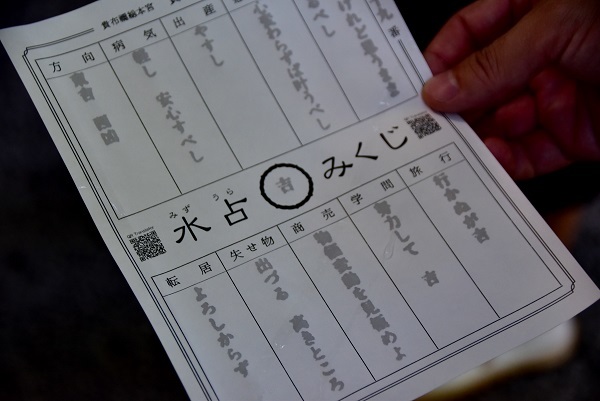 貴布禰総本宮
番
思うまま
べし
心変わらずば叶うべし
出産
やすし
病気
軽し 安心すべし
方向
みずうら
水占 吉 みくじ
QR Translator
旅行
行かぬが吉
学問
努力して 吉
商売
物価変動を見極めよ
失せ物
出づる 高きところ
転居
よろしからず